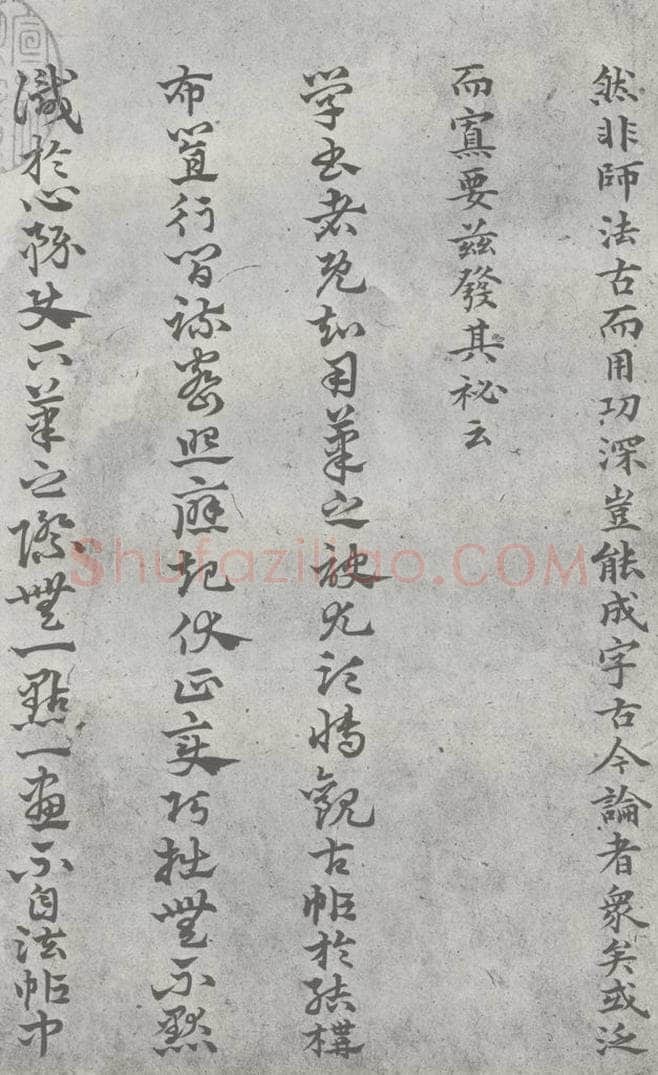 然非師法古而用功深豈能成字古今論者衆矣或泛
而寡要茲發其祕云
学书者既知用筆之訣尤詣博觀古帖於結構
布置行間疏密照應起伏正変巧拙無不默
識於心務使下筆之際無一點一畫不自法帖中
Shufaziliao.COM